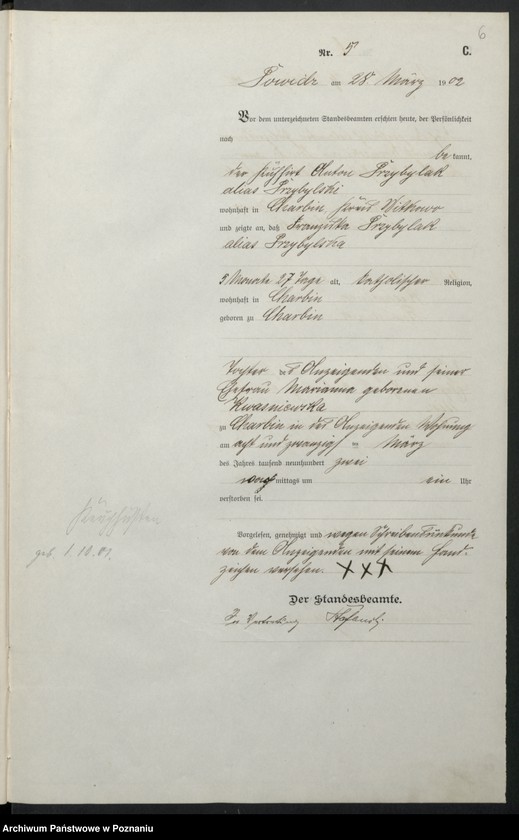 6
Nr. 5 C.
Powidz am 28 März 1902
Vor dem unterzeichneten Standesbeamten erschien heute, der Persönlichkeit
nach
be kannt,
der Kuhhirt Anton Przybylak
alias Przybylski
wohnhaft in Charbin, Kreis Witkowo
und zeigte an, daß Franziska Przybylak
alias Przybylska
5 Monate 27 Tage alt, katholischer Religion,
wohnhaft in Charbin
geboren zu Charbin
Tochter des Anzeigenden und seiner
Ehefrau Marianna geborenen
Kwasniewska
zu Charbin in des Anzeigenden Wohnung
am acht und zwanzigsten März
des Jahres tausend neunhundert zwei
mittags um ein Uhr
verstorben sei.
Keuchhusten
geb. 1.10.01.
Vorgelesen, genehmigt und wegen Schreibensunkunde
von dem Anzeigenden mit seinem Hand-
zeichen versehen. XXX
Der Standesbeamte.
In Vertretung
Archiwum Państwowe w Poznaniu